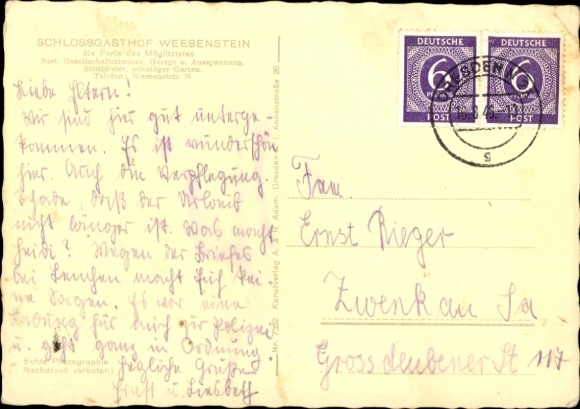 SCHLOSSGASTHOF WEESENSTEIN
die Perle des Müglitztales
Saal, Gesellschaftszimmer, Garage u. Ausspannung,
Staubfreier, schattiger Garten.
Telefon: Weesenstein 19
Liebe Eltern!
Wir sind hier gut unterge-
kommen. Es ist wunderschön
hier. Auch die Verpflegung.
Schade, daß der Urlaub
nicht länger ist. Was macht
Heidi? Wegen der Briefes
bei Lenchen macht Euch kei-
ne Sorgen. Es war eine
Ladung für mich zur Polizei
u. geht ganz in Ordnung
Herzliche Grüße
Ernst u. Liesbeth
Echte Photographie
Nachdruck verboten!
Nr. 7252 Kunstverlag A. & R. Adam, Dresden-A. 1, Annenstraße 26
DEUTSCHE
6
PFENNIG
POST
DEUTSCHE
6
POST
DRESDEN
s
Fam.
Ernst Rieger
Zwenkau Sa
Grossdeubener St 117